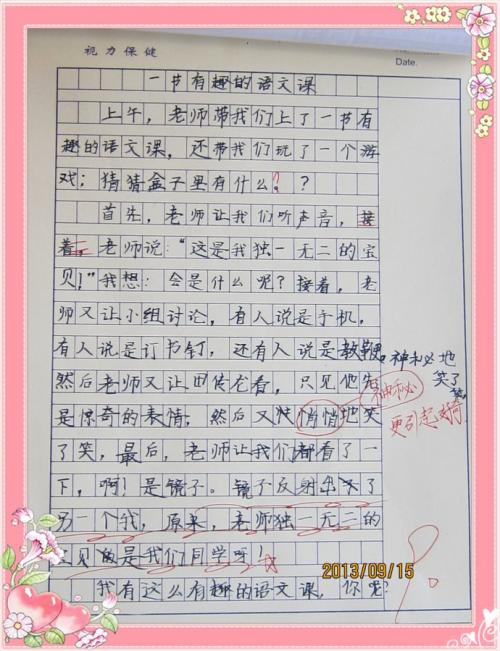 视力保健
Date.
一节有趣的语文课
上午，老师带我们上了一节有
趣的语文课，还带我们玩了一个游
戏：猜猜盒子里有什么？
首先，老师让我们听声音，接
着，老师说：“这是我独一无二的宝
贝！”我想：会是什么呢？接着，老
师又让小组讨论，有人说是手机，
有人说是订书钉，还有人说是教鞭。
神秘地
然后老师又让田传龙看，只见他先
笑了
神秘
是惊奇的表情，然后又悄悄地笑
更引起好奇
了笑，最后，老师让我们都看了一
下，啊！是镜子。镜子反射出了
另一个我，原来，老师独一无二的
贝的是我们同学呀！
2013/09/15
我有这么有趣的语文课，你呢？